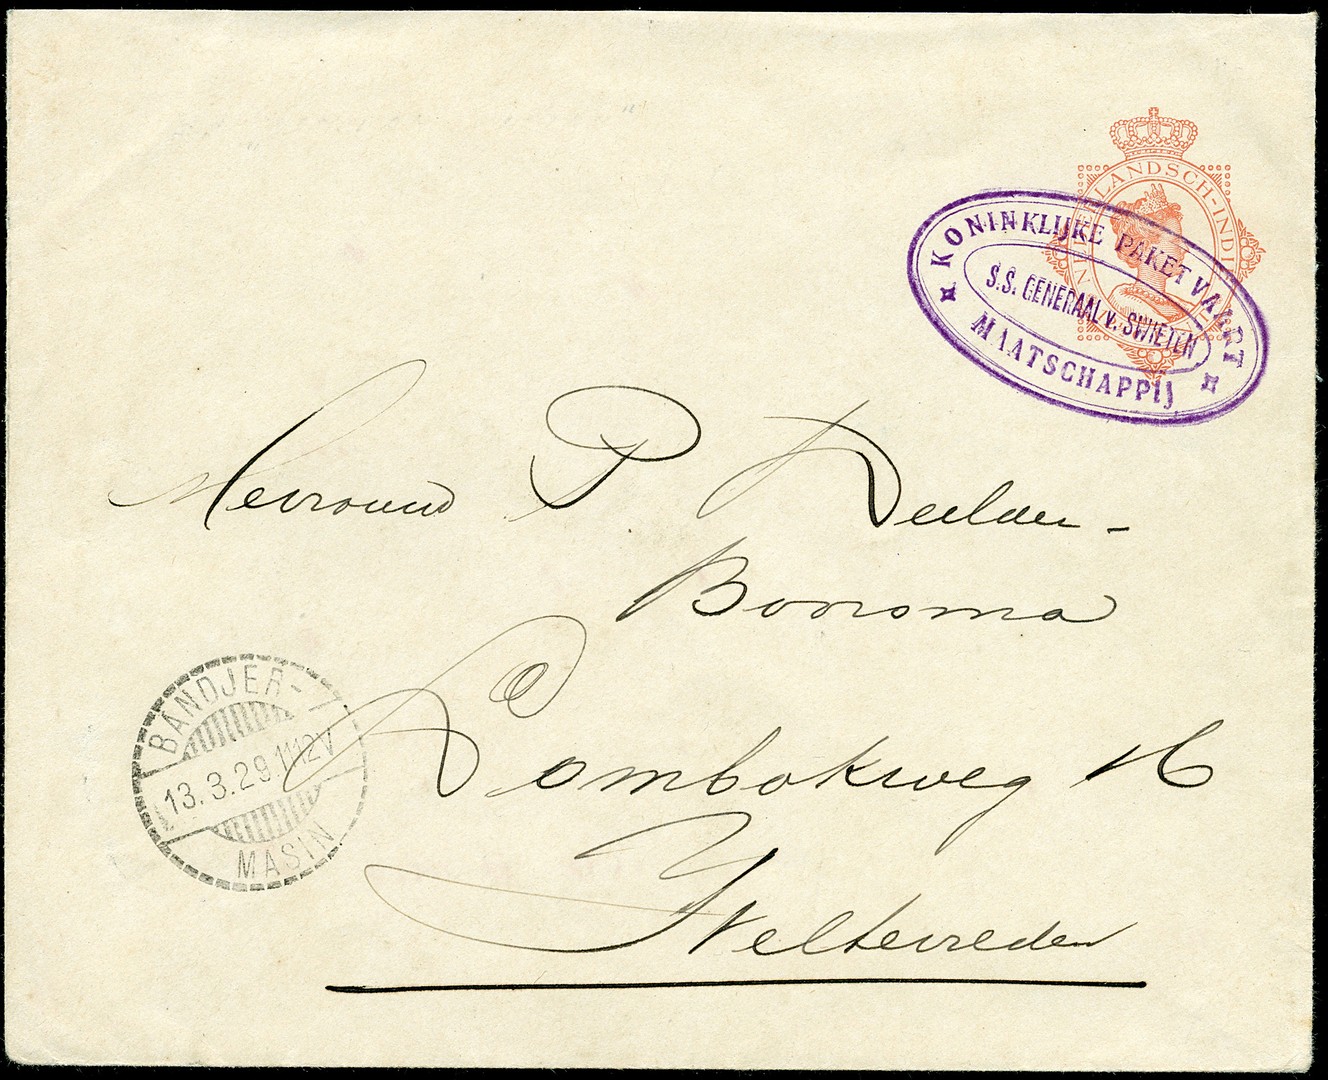 NEDERLANDSCH-INDIË
KONINKLIJKE PAKETVAART
S.S. GENERAAL v. SWIETEN
MAATSCHAPPIJ
Mevrouw P. Deelder-
Boorsma
Lombokweg 16
Weltevreden
BANDJER-1
13.3.29.1112V
MASIN